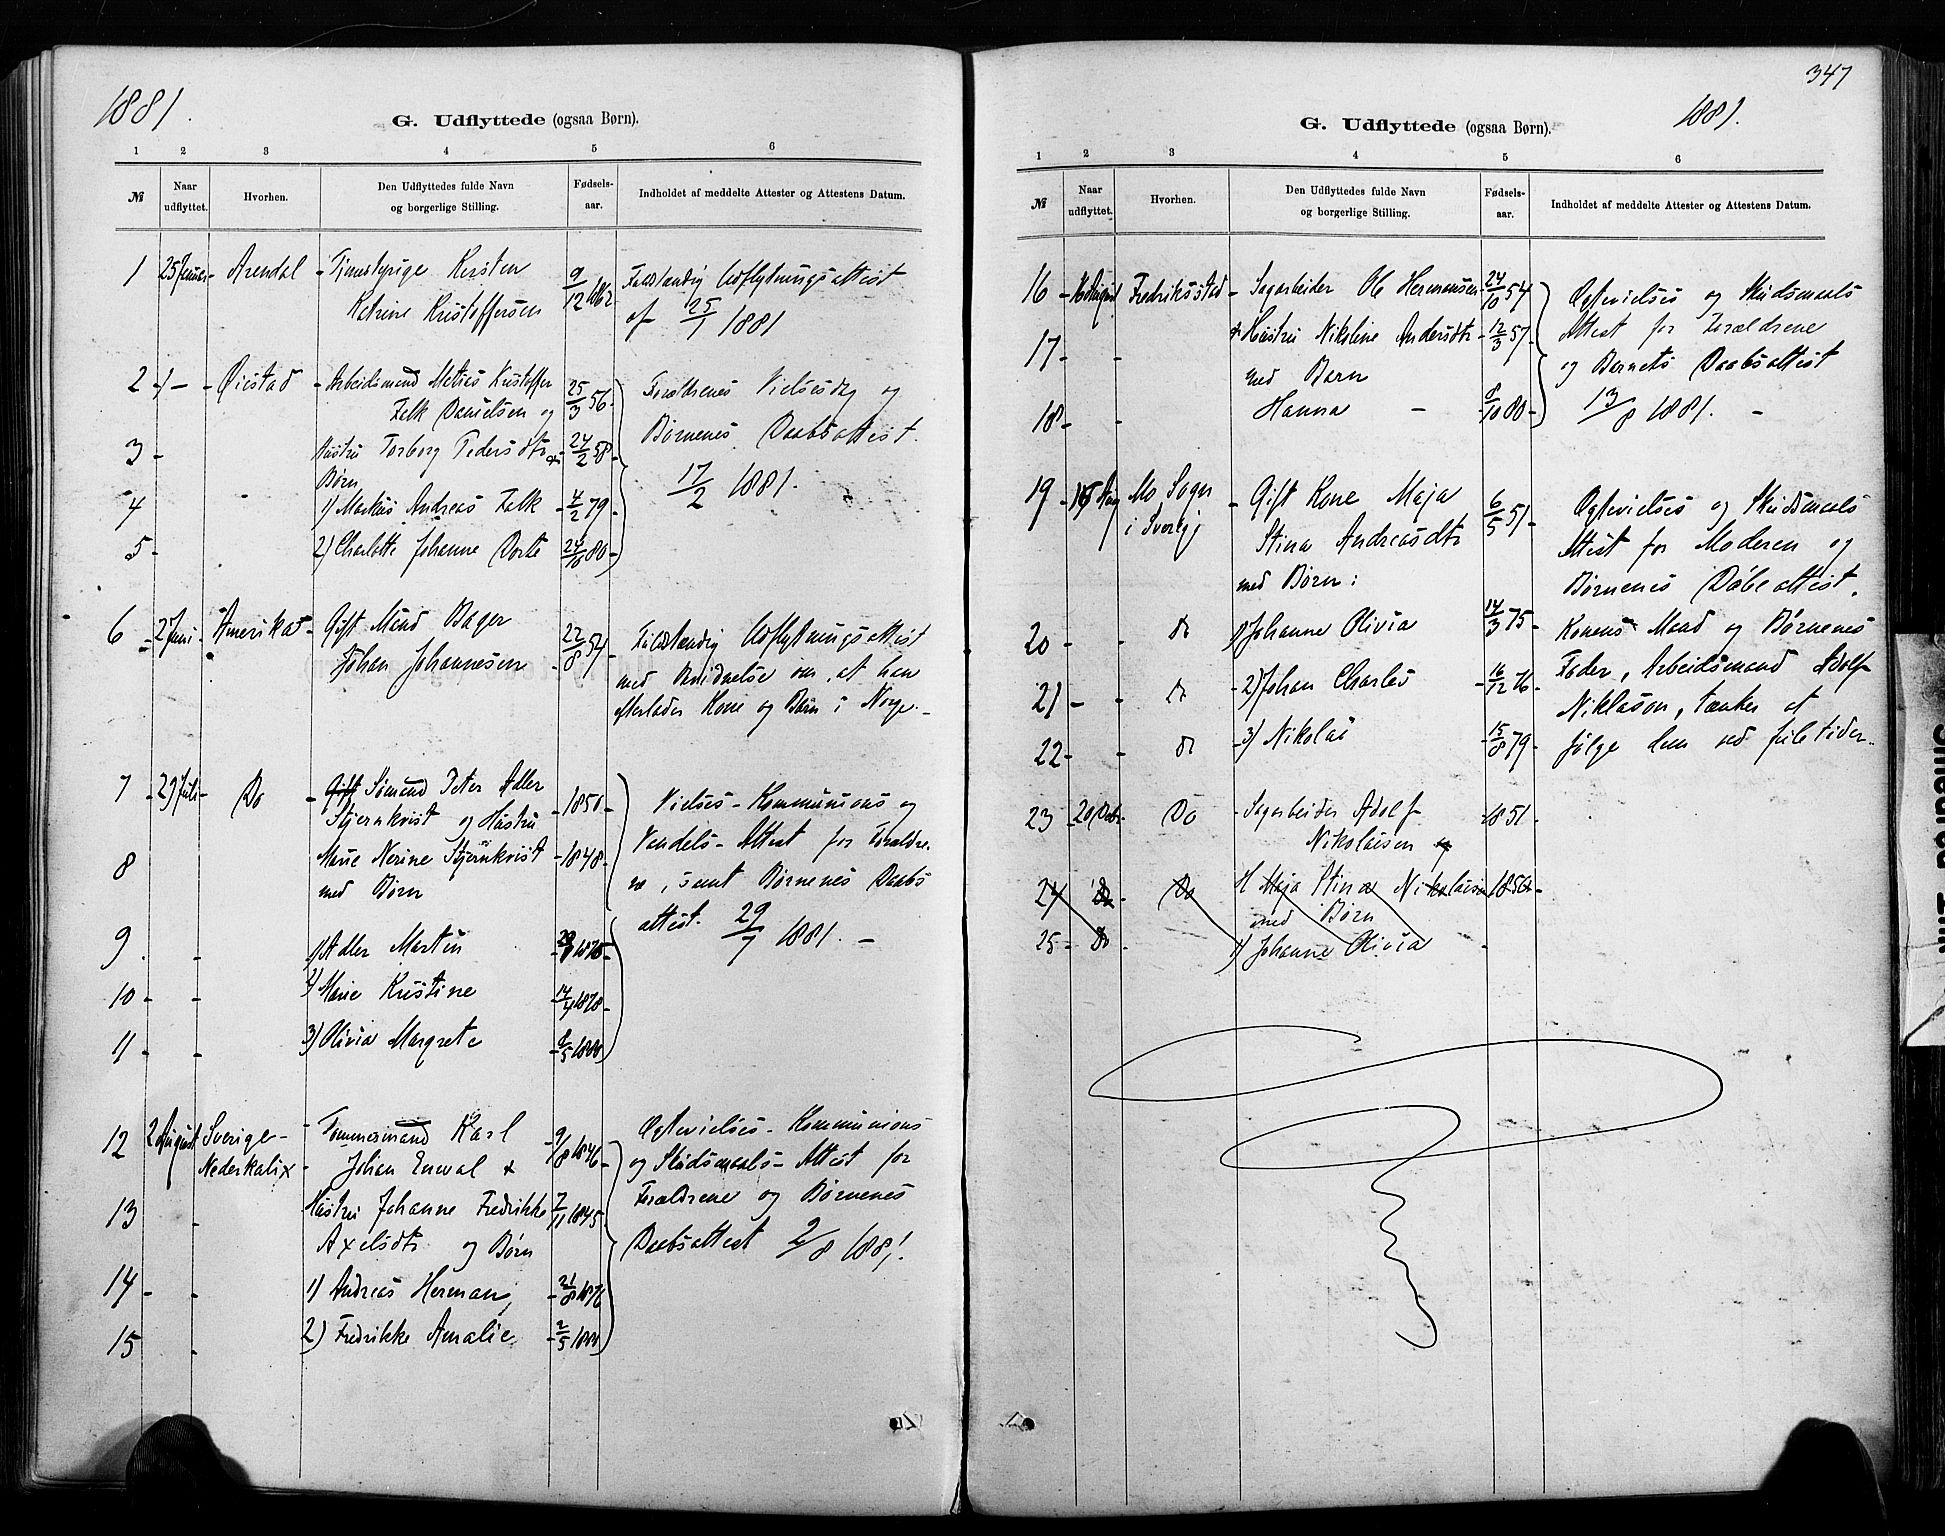 1881.
G. Udflyttede (ogsaa Børn).
1 2 3 4 5 6
№ Naar udflyttet. Hvorhen. Den Udflyttedes fulde Navn og borgerlige Stilling. Fødsels-aar. Indholdet af meddelte Attester og Attestens Datum.
1 25 Januar - Arendal - Tjenestepige Kirsten 9/12 1862 Fuldstændig Udflytningsattest
Katrine Kristoffersen af 25/1 1881
2 - Øiestad - Arbeidsmand Kristoffer 25/3 56 - Forældrenes Vielsesdag og
Falk Danielsen og Børnenes Daabsattest.
3 - Hustru Torborg Pedersdtr 24/2 58 - 17/2 1881.
Børn
4 - 1) Markus Andreas Falk - 4/2 79 -
5 - 2) Charlotte Johanne Dorte 80 -
6 - 2 Juni - Amerika - Gift Mand Bager 22/8 54 - Fuldstændig Udflytningsattest
Johan Johannesen med Bevidnelse om, at han
efterlader Kone og Børn i Norge. -
7 - 29 Juli - Do - Gift Sømand Peter Adler - 1850 - Vielses - Kommunions og
Stjernkvist og Hustru Vandels - Attest for Forældre-
8 Marie Nerine Stjernkvist - 1848 - ne, samt Børnenes Daabs
med Børn attest. 29/7 1881. -
9 - 1) Adler Martin
10 - - 2) Marie Kristine 1878 -
11 - - 3) Olivia Margrete 1880
12 2 August Sverige - Tømmermand Karl - 9/8 1846 - Ægtevielses - Kommunions
Nederkalix - Johan Enwal & og Skudsmaals - Attest for
13 - Hustru Johanne Fredrikke 7/11 1845 Forældrene og Børnenes
Axelsdtr og Børn Daabsattest 2/8 1881.
14 - - 1) Andreas Herman, - 21/8 1876
15 - 2) Fredrikke Amalie - 2/5 1880
347
1881.
G. Udflyttede (ogsaa Børn).
1 2 3 4 5 6
№ Naar udflyttet. Hvorhen. Den Udflyttedes fulde Navn og borgerlige Stilling. Fødsels-aar. Indholdet af meddelte Attester og Attestens Datum.
16 - August Fredriksstad - Sagarbeider Ole Hermansen 24/10 54 Ægtevielses og Skudsmaals
17 - - & Hustru Nikoline Andersdtr - 12/3 57 - Attest for Forældrene
med Barn og Barnets Daabsattest
18 - - Hanna - 80 - 13/8 1881. -
19 - Aug Mo Sogn - Gift Kone Maja 6/5 51 - Ægtevielses og Skudsmaals
i Sverig Stina Andreasdtr Attest for Moderen og
med Børn: Børnenes Døbeattest.
20 - - do 1) Johanne Olivia 14/3 75 - Konens Mand og Børnenes
21 - - do - 2) Johan Charles - 16/12 76 - Fader, Arbeidsmand Adolf
Niklason, tænker at
22 - - do - 3) Nikolai - 15/8 79 - følge dem ved Juletider.
23 - 20 Do - Sagarbeider Adolf - 1851 -
Nikolaisen og
24 Do Do H Maja Stina Nikolaisen 1850 -
med Børn
25 - Do - 1) Johanne Olivia -